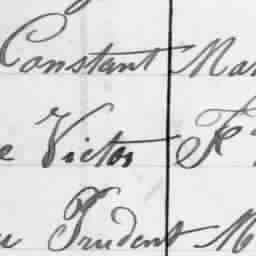 Constant Mar
e Victor Fs
u Prudent M